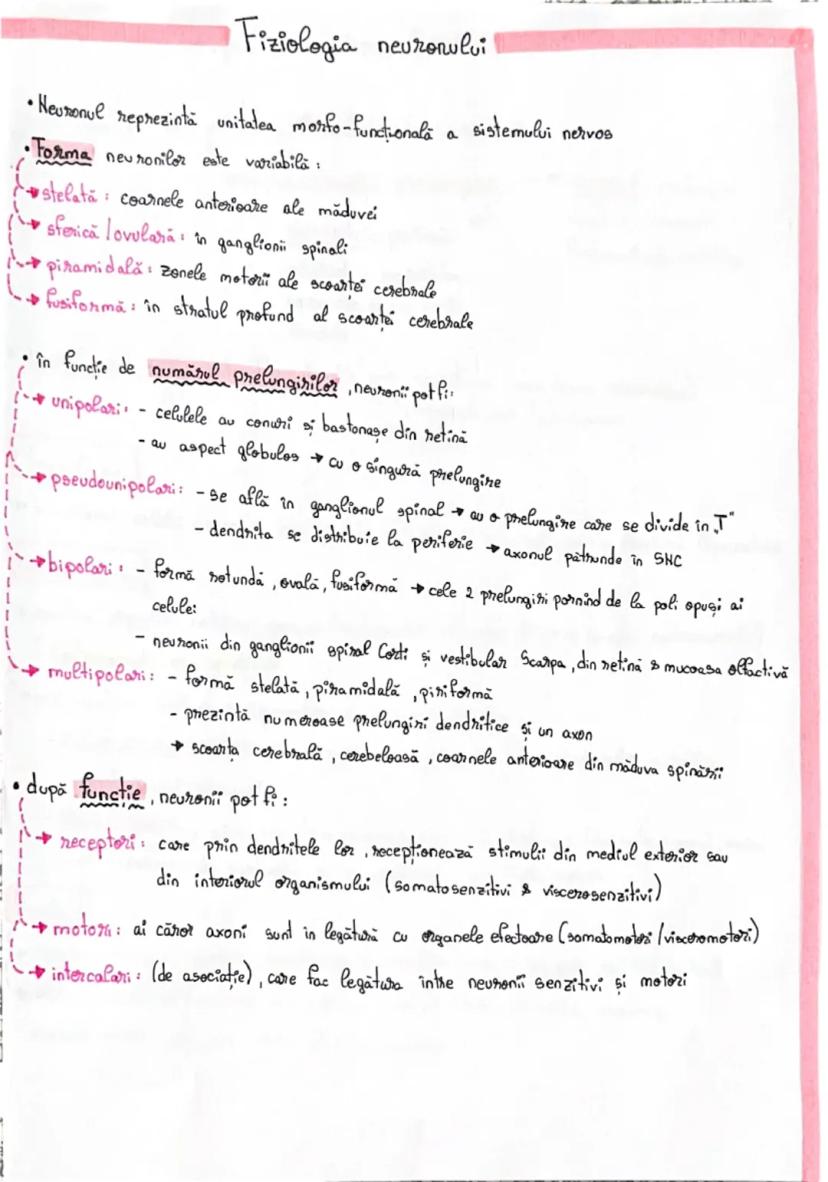 Fiziologia neuronului
• Neuronul reprezintă unitatea morfo-funcțională a sistemului nervos
• Forma neuronilor este variabilă:
→ stelată: coarnele anterioare ale măduvei
→ sferică/ovulară: în ganglionii spinali
→ piramidală: zonele motorii ale scoarței cerebrale
→ fusiformă: în stratul profund al scoarței cerebrale
• în funcție de numărul prelungirilor, neuronii pot fi:
→ unipolari: - celulele au conuri și bastonașe din retină
- au aspect globulos → cu o singură prelungire
→ pseudounipolari: - se află în ganglionul spinal → au o prelungire care se divide în „T"
- dendrita se distribuie la periferie → axonul pătrunde în SNC
→ bipolari: - formă rotundă, ovală, fusiformă → cele 2 prelungiri pornind de la poli opuși ai
celule:
- neuronii din ganglionii spiral Corti și vestibular Scarpa, din retină & mucoasa olfactivă
→ multipolari: - formă stelată, piramidală, piriformă
- prezintă numeroase prelungiri dendritice și un axon
→ scoarța cerebrală, cerebeloasă, coarnele anterioare din măduva spinării
• după funcție, neuronii pot fi:
→ receptori: care prin dendritele lor, recepționează stimulii din mediul exterior sau
din interiorul organismului (somatosenzitivi & viscerosenzitivi)
→ motori: ai căror axoni sunt in legătură cu organele efectoare (somatomotori/visceromotori)
→ intercalari: (de asociație), care fac legătura între neuronii senzitivi și motori